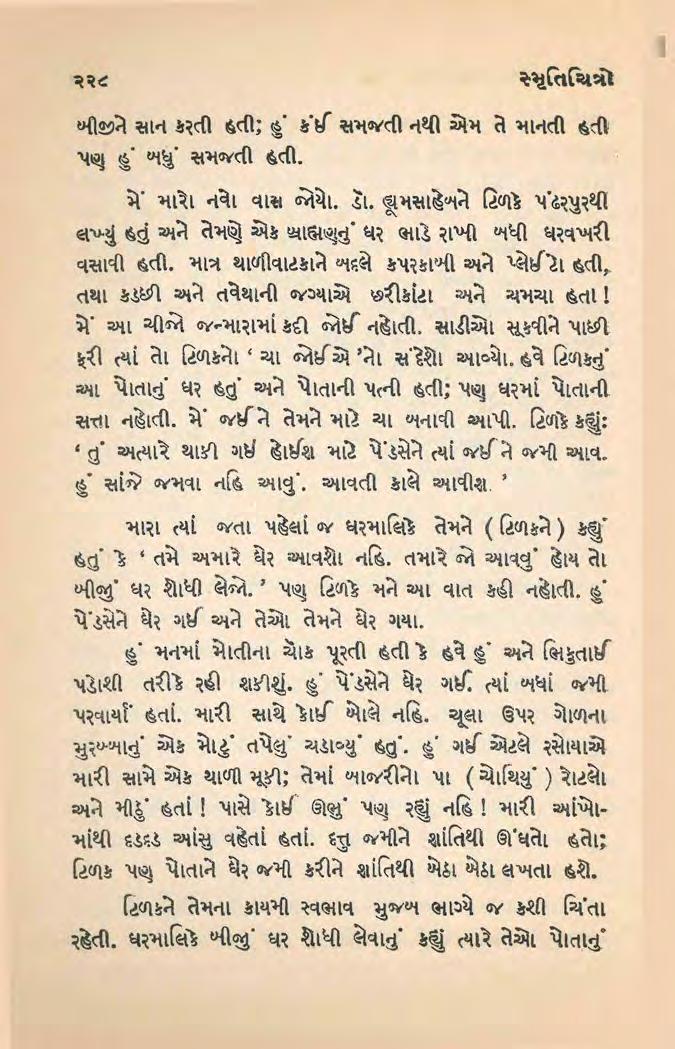 ૨૨૮ સ્મૃતિચિત્રો
બીજીને સાન કરતી હતી; હું કંઈ સમજતી નથી એમ તે માનતી હતી
પણ હું બધું સમજતી હતી.
મેં મારો નવો વાસ જોયો. ડૉ. હ્યૂમસાહેબને ટિળકે પંઢરપુરથી
લખ્યું હતું અને તેમણે એક બ્રાહ્મણનું ઘર ભાડે રાખી બધી ઘરવખરી
વસાવી હતી. માત્ર થાળીવાટકાને બદલે કપરકાબી અને પ્લેઈટો હતી,
તથા કડછી અને તવેથાની જગ્યાએ છરીકાંટા અને ચમચા હતા!
મેં આ ચીજો જન્મારામાં કદી જોઈ નહોતી. સાડીઓ સૂકવીને પાછી
ફરી ત્યાં તો ટિળકનો ‘ ચા જોઈએ ’નો સંદેશો આવ્યો. હવે ટિળકનું
આ પોતાનું ઘર હતું અને પોતાની પત્ની હતી; પણ ઘરમાં પોતાની
સત્તા નહોતી. મેં જઈને તેમને માટે ચા બનાવી આપી. ટિળકે કહ્યું:
‘ તું અત્યારે થાકી ગઈ હોઈશ માટે પેંડસેને ત્યાં જઈને જમી આવ.
હું સાંજે જમવા નહિ આવું. આવતી કાલે આવીશ. ’
મારા ત્યાં જતા પહેલાં જ ઘરમાલિકે તેમને ( ટિળકને ) કહ્યું
હતું કે ‘ તમે અમારે ઘેર આવશો નહિ. તમારે જો આવવું હોય તો
બીજું ઘર શોધી લેજો. ’ પણ ટિળકે મને આ વાત કહી નહોતી. હું
પેંડસેને ઘેર ગઈ અને તેઓ તેમને ઘેર ગયા.
હું મનમાં મોતીના ચોક પૂરતી હતી કે હવે હું અને ભિકુતાઈ
પડોશી તરીકે રહી શકીશું. હું પેંડસેને ઘેર ગઈ. ત્યાં બધાં જમી
પરવાર્યાં હતાં. મારી સાથે કોઈ બોલે નહિ. ચૂલા ઉપર ગોળના
મુરબ્બાનું એક મોટું તપેલું ચડાવ્યું હતું. હું ગઈ એટલે રસોયાએ
મારી સામે એક થાળી મૂકી; તેમાં બાજરીનો પા ( ચોથિયું ) રોટલો
અને મીઠું હતાં! પાસે કોઈ ઊભું પણ રહ્યું નહિ! મારી આંખો-
માંથી દડદડ આંસુ વહેતાં હતાં. દત્તુ જમીને શાંતિથી ઊંઘતો હતો;
ટિળક પણ પોતાને ઘેર જમી કરીને શાંતિથી બેઠા બેઠા લખતા હશે.
ટિળકને તેમના કાયમી સ્વભાવ મુજબ ભાગ્યે જ કશી ચિંતા
રહેતી. ઘરમાલિકે બીજું ઘર શોધી લેવાનું કહ્યું ત્યારે તેઓ પોતાનું